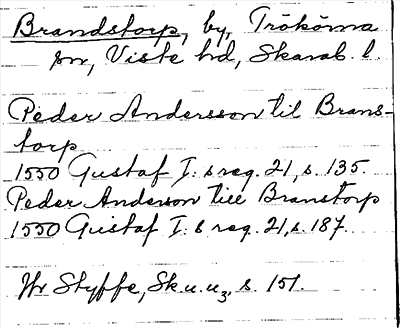 Brandstorp, by, Trökörna
sn, Viste hd, Skarab. l.
Peder Andersson til Brans-
torp
1550 Gustaf I: s reg. 21, s. 135.
Peder Anderson till Branstorp
1550 Gustaf I: s reg. 21, s. 187.
Jfr Styffe, Sk. u. u3, s. 151.